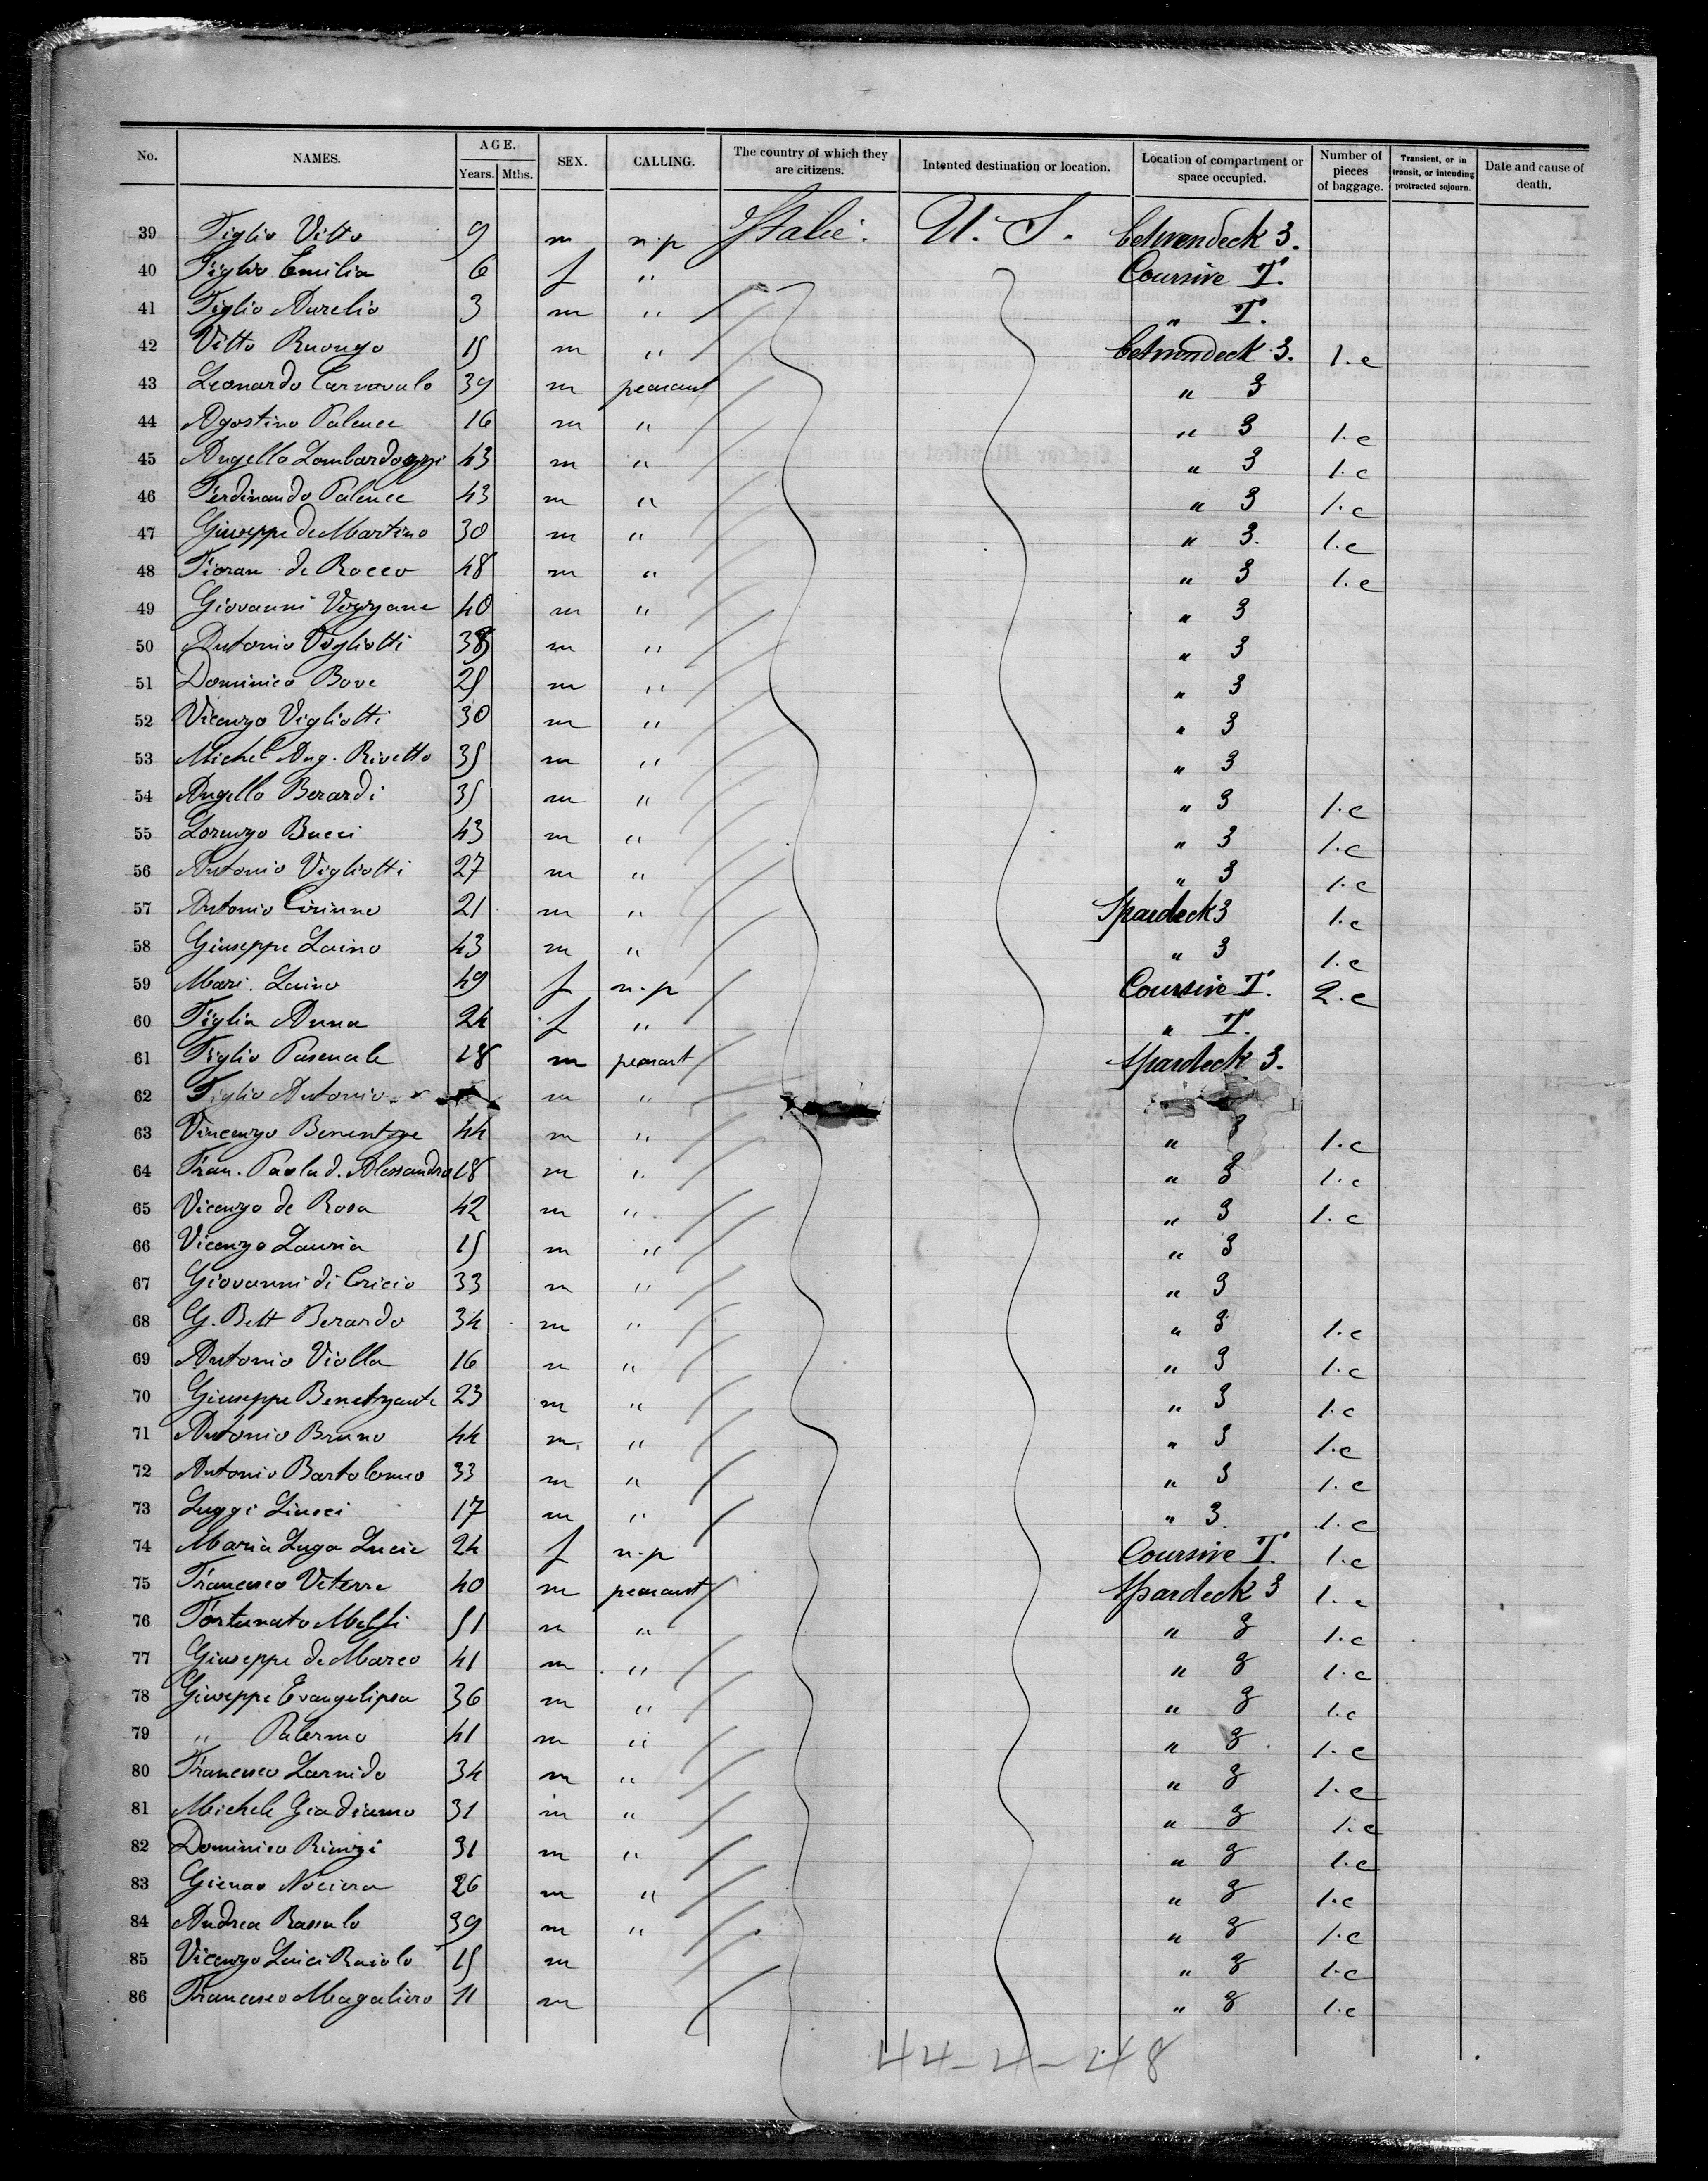 No. NAMES. AGE. Years. Mths. SEX. CALLING. The country of which they are citizens. Intented destination or location. Location of compartment or space occupied. Number of pieces of baggage. Transient, or in transit, or intending protracted sojourn. Date and cause of death.
39 Figlio Vitto 9 m n.p Italie. U. S. betwendeck 3.
40 Figlio Emilia 6 f " Coursive T.
41 Figlio Aurelio 3 m " " T.
42 Vitto Ruongo 15 m " betwendeck 3. 1.c
43 Leonardo Carnovalo 39 m peasant " 3
44 Agostino Palence 16 m " " 3 1.c
45 Angello 43 m " " 3 1.c
46 Ferdinando Palence 43 m " " 3 1.c
47 Giuseppe de Martino 30 m " " 3. 1.c
48 Fioran de Rocco 48 m " " 3 1.c
49 Giovanni 40 m " " 3
50 Antonio Vogliotti 38 m " " 3
51 Dominico Bove 25 m " " 3
52 Vicenzo Vigliotti 30 m " " 3
53 Michel Ang. Rivetto 35 m " " 3
54 Angello Berardi 35 m " " 3 1.c
55 Lorenzo Bucci 43 m " " 3 1.c
56 Antonio Vigliotti 27 m " " 3 1.c
57 Antonio Cirinno 21 m " Spardeck 3 1.c
58 Giuseppe Laino 43 m " " 3 1.c
59 Mari. Laino 49 f n.p Coursive T. 2.c
60 Figlia Anna 24 f " " T.
61 Figlio Pascuale 18 m peasant Spardeck 3.
62 Figlio Antonio m "
63 Vincenzo 44 m " " 3 1.c
64 Fran. Paola d. Alessandro 18 m " " 3 1.c
65 Vicenzo de Rosa 42 m " " 3 1.c
66 Vicenzo Lauria 15 m " " 3
67 Giovanni di Cricio 33 m " " 3
68 G. Batt Berardo 34 m " " 3 1.c
69 Antonio Violla 16 m " " 3 1.c
70 Giuseppe 23 m " " 3 1.c
71 Antonio Bruno 44 m. " " 3 1.c
72 Antonio Bartolomeo 33 m " " 3 1.c
73 Luggi Liucci 17 m " " 3. 1.c
74 Maria Luga Lucie 24 f n.p Coursive T. 1.c
75 Francesco Veterre 40 m peasant Spardeck 3 1.c
76 Fortunato Melfi 51 m " " 3 1.c
77 Giuseppe de Marco 41 m " " 3 1.c
78 Giuseppe 36 m " " 3 1.c
79 " Palermo 41 m " " 3 1.c
80 Francesco Larnido 34 m " " 3 1.c
81 Michele Giadiamo 31 m " " 3 1.c
82 Dominico Rienzi 31 m " " 3 1.c
83 Nociera 26 m " " 3 1.c
84 Andrea Rassulo 39 m " " 3 1.c
85 Vicenzo Luici Raiolo 15 m " 3 1.c
86 Francesco Magaliero 11 m " 3 1.c
44-4-48